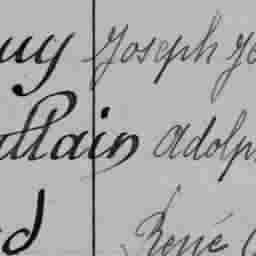 uy Joseph Je
allain Adolph
d René